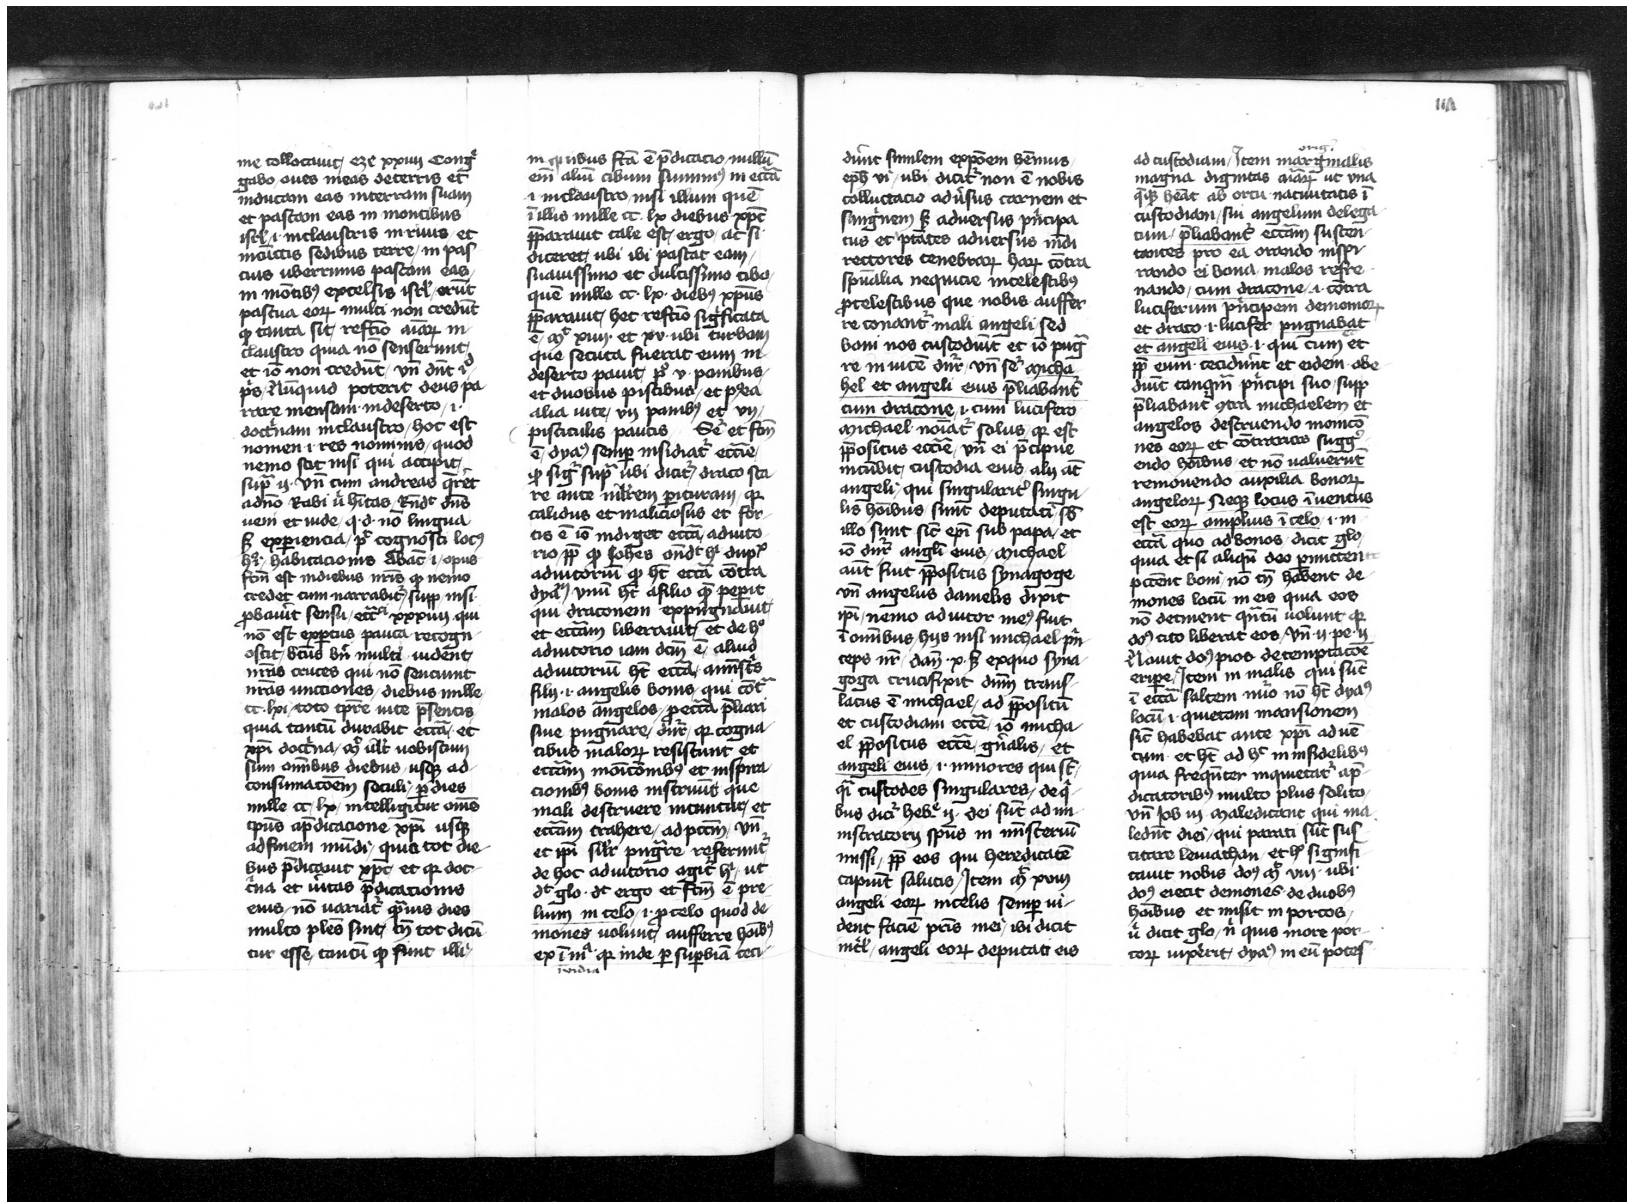 me collocavit / eze xxxiiii Congͬ
gabo / oves meas de terris et
inducam eas in terram suam
et pascam eas in montibus
isrl̄ / .i. in claustris in rivis / et
in cūctis sedibus terre / in pas
cuis uberrimis pascam eas /
in mōtib⁹ excelsis isrl̄ / erūt
pascua eoꝝ multi non credūt
ꝙ tanta sit / refectio aīaꝝ in
claustro quia nō senserunt /
et iō non credūt / vn̄ dn̄t
ps̄ Nūquid poterit deus pa
rare mensam in deserto / .i.
doctͥnam in claustro / hoc est
nomen .i. res nominis / quod
nemo scit nisi qui accipit /
supͣ ij. vn̄ cum andreas qͣreret
a dn̄o Rabi u̇ hītas Rn̄dt dn̄s
veni et vide / q. d. nō lingua
sꝫ experiencia / pͥ cognosci loc⁹
habitacionis abac̄ .i. opus
fctm̄ est in diebus nr̄is ꝙ nemo
credet cum narrabit̄ / supp nisi
ꝓbaūit sensu / ecc̄ xxxiiij qui
nō est expertus pauca recogn
oscit / bt̄us bn̄ multi vident /
nr̄as cruces qui nō senciunt
nr̄as uncciones / diebus mille
cc. lxi / toto tp̄re vite p̄sentis
quia tantū durabit ecc̄a / et
xp̄i doctͥna / mͭ ult̄ vobiscum
sum omībus diebus / usqꝫ ad
consumacōem seculi / ꝑ dies
mille cc / lx / intelligitur om̄e
tp̄us a p̄dicacione xp̄i usqꝫ
ad finem mūdi / quia tot die
bus p̄dicavit xp̄c et ꝙ doc
tͥna et vītas p̄dicacionis
eius / nō variat̄ qͣmvis dies
multo pl̄es sint / tn̄ tot dicū
tur esse / tantū ꝙ sunt illi
in quibus fctā ē p̄dicacio / nullū
em̄ aliū cibum sumim⁹ in ecc̄a
.i. in claustro nisi illum quē
ī illis mille cc. lx diebus xp̄c
p̄paravit tale est / ergo / ac si
diceret / ubi ibi pascat eam /
suavissimo et dulcissimo cibo /
quē mille cc. lx. dieb⁹ xp̄us
p̄paravit / hec refectio sigͥficata
ē / mͭ xiiij. et xv. ubi turbam
que secuta fuerat eum in
deserto pavit / pͦ v. panibus /
et duobus piscibus / et p̄t̄ea
alia vice / vij panib⁹ et vij /
pisciculis paucis Seͬ et fctm̄
ē / dyaꝰ semp insidiat̄ ecc̄ie /
ꝙ sigͬ supͣ ubi dicit̄ / draco sta
re ante mlr̄em parituram / qꝛ
calidus et maliciosus et for
tis ē iō indiget ecc̄a / adiuto
rio / ꝓp ꝙ Iohes
adiutoriū ꝙ hꝫ ecc̄a cōtra
dyaꝫ / unū hꝫ a filio qͥ peperit
qui draconem expugnavit
et ecc̄am liberavit / et de hͦ
adiutorio iam dcm̄ ē / aliud
adiutoriū hꝫ ecc̄a / a mīstͥs
filii .i. angelis bonis / qui cōtͣ
malos angelos / ꝓ ecc̄a p̄liari
sive pugnare / dn̄r / qꝛ cogna
tibus maloꝝ resistunt et
ecc̄am monicōnib⁹ et inspira
cionib⁹ bonis instruūt que
mali destruere intunūtur / et
ecc̄am trahere / ad pctm̄ / vn̄
et ip̄i silr̄ pugͣre referunt̄
de hoc adiutorio agit̄ hͥ / ut
dt̄ glo. dt̄ ergo et fctm̄ ē pre
lium in celo / .i. ꝓ celo quod de
mones volunt / aufferre hoīb⁹
ex īniͣ qꝛ inde ꝑ suꝑbiā ceci
īvidia
dūnt similem exp̄oem hēmus /
eph vi / ubi dicit̄ non ē nobis
colluctacio adv̄sus carnem et
sangͥnem sꝫ adversus pͥncipa
tus et ptātes adversus mūdi
rectores tenebraꝝ haꝝ cōtra
spūalia nequicie in celestibꝫ
ꝓ celestibus que nobis auffer
re conant̄ mali angeli sed
boni nos custodiūt et iō pugͣ
re in vicē dn̄r / vn̄ seͬ Micha
hel et angeli eius p̄liabant̄
cum dracone / .i. cum lucifero
Michael noīat̄ solus / qꝛ est
p̄positus ecc̄ie / vn̄ ei p̄cipue
incūbit / custodia eius alij at̄
angeli / qui singularit̄ singu
lis hoībus / sunt deputati / sb
illo sunt sic̄ ep̄i sub papa / et
iō dn̄r angl̄i eius / Michael
aut̄ fuit p̄positus synagoge
vn̄ angelus danielis dixit
ip̄i / nemo adiutor me⁹ fuit
ī omībus hijs nisi michael pͥn
ceps nr̄ / dan̄ .x. sꝫ ex quo syna
goga crucifixit dn̄m trans
latus ē michael / ad p̄positū
et custodiam ecc̄e / iō micha
el p̄positus ecc̄e / gn̄alis / et
angeli eius / .i. minores qui st̄
qͣi custodes singulares / de qͥ
bus dicͬ hebͬ ij. dei sūt ad mi
nistratorij spūs in mīsteriū
missi / ꝓp eos qui hereditatē
capiūt salutis / Item mͭ xviij
angeli eoꝝ in celis semp vi
dent faciem pr̄is mei / ibi dicit
int̄l / angeli eoꝝ deputati eis
oriḡ.
ad custodiam / Item marginalis
magna dignitas aīaꝝ ut una
qͥqꝫ hēat ab ortu nativitatis ī
custodiam / sui angelum delega
tum / p̄liabant̄ ecc̄am susten
tantes pro ea orando inspi
rando ei bona malos refre
nando / cum dracone .i. cōtra
luciferum pͥncipem demonioꝝ
et draco .i. lucifer pugnabat
et angeli eius .i. qui cum et
ꝓp eum ceciderūt et eidem obe
diūt tanqͣm pͥncipi suo / supp
p̄liabant̄ cͣtra michaelem et
angelos destruendo monicō
nes eoꝝ et cōtraria suggͬ
endo hoībus / et nō valuerūt
removendo auxilia bonoꝝ
angeloꝝ Neqꝫ locus īventus
est eoꝝ amplius ī celo / .i. in
ecc̄a quo ad bonos / dicit glo /
quia et si aliqn̄ deo ꝑmittente
peccēt boni / nō tn̄ habent de
mones locū in eis quia eos
nō detinent qͣntū volunt qꝛ
dꝰ cito liberat eos / Vn̄ .ij. pe. ij
Novit dꝰ pios de temptacōe
eripe / Item in malis qui sūt
ī ecc̄a saltem nūo nō hꝫ dyaꝰ
locū .i. quietam mansionem
sic̄ habebat ante xp̄i advē
tum / et hꝫ ad hͨ in infidelibꝫ
quia freqn̄ter inquietat̄ a p̄
dicatorib⁹ multo plus solito /
vn̄ Iob iij maledicant qui ma
ledn̄t diei / qui parati sūt sus
citare leviathan / et hͨ signifi
cavit nobis dꝰ mͭ viij ubi
dꝰ eiecit demones de duobꝫ
hoībus et misit in porcos /
u̇ dicit glo / nͥ quis more por
coꝝ vixerit / dyaꝰ in eū potes